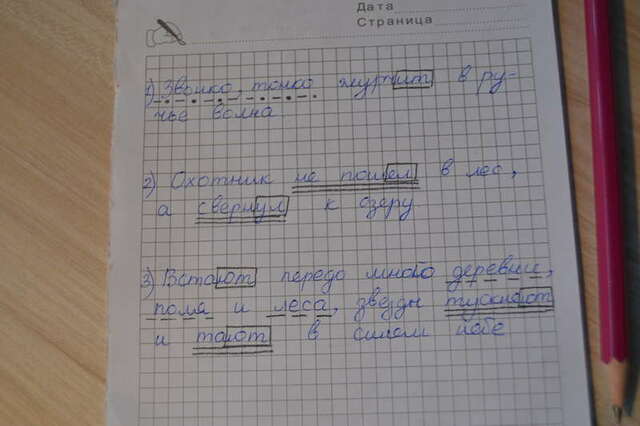 Дата
Страница
1) Звонко, тонко журчит в ру-
чье волна.
2) Охотник не пошел в лес,
а свернул к озеру.
3) Встают передо мною деревни,
поля и леса, звезды тускнеют
и тают в синем небе